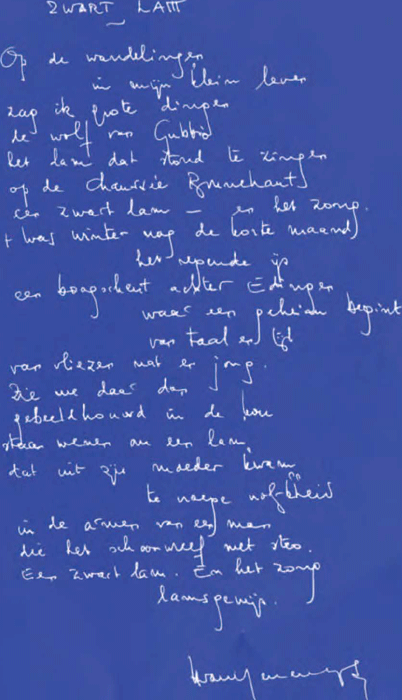 ZWART LAM
Op de wandelingen
in mijn klein leven
zag ik grote dingen
de wolf van Gubbio
het lam dat stond te zingen
op de chaussée Brunehaut
een zwart lam — en het zong.
't was winter nog de korte maand
het regende ijs
een boogscheut achter Edingen
waar een geheim begint
van taal en tijd
van vliezen nat en jong.
Zie me daar dan
gebeeldhouwd in de kou
staan wenen om een lam
dat uit zijn moeder kwam
te
in de armen van een man
die het schoonwreef met stro.
Een zwart lam. En het zong
lamsgewijs.